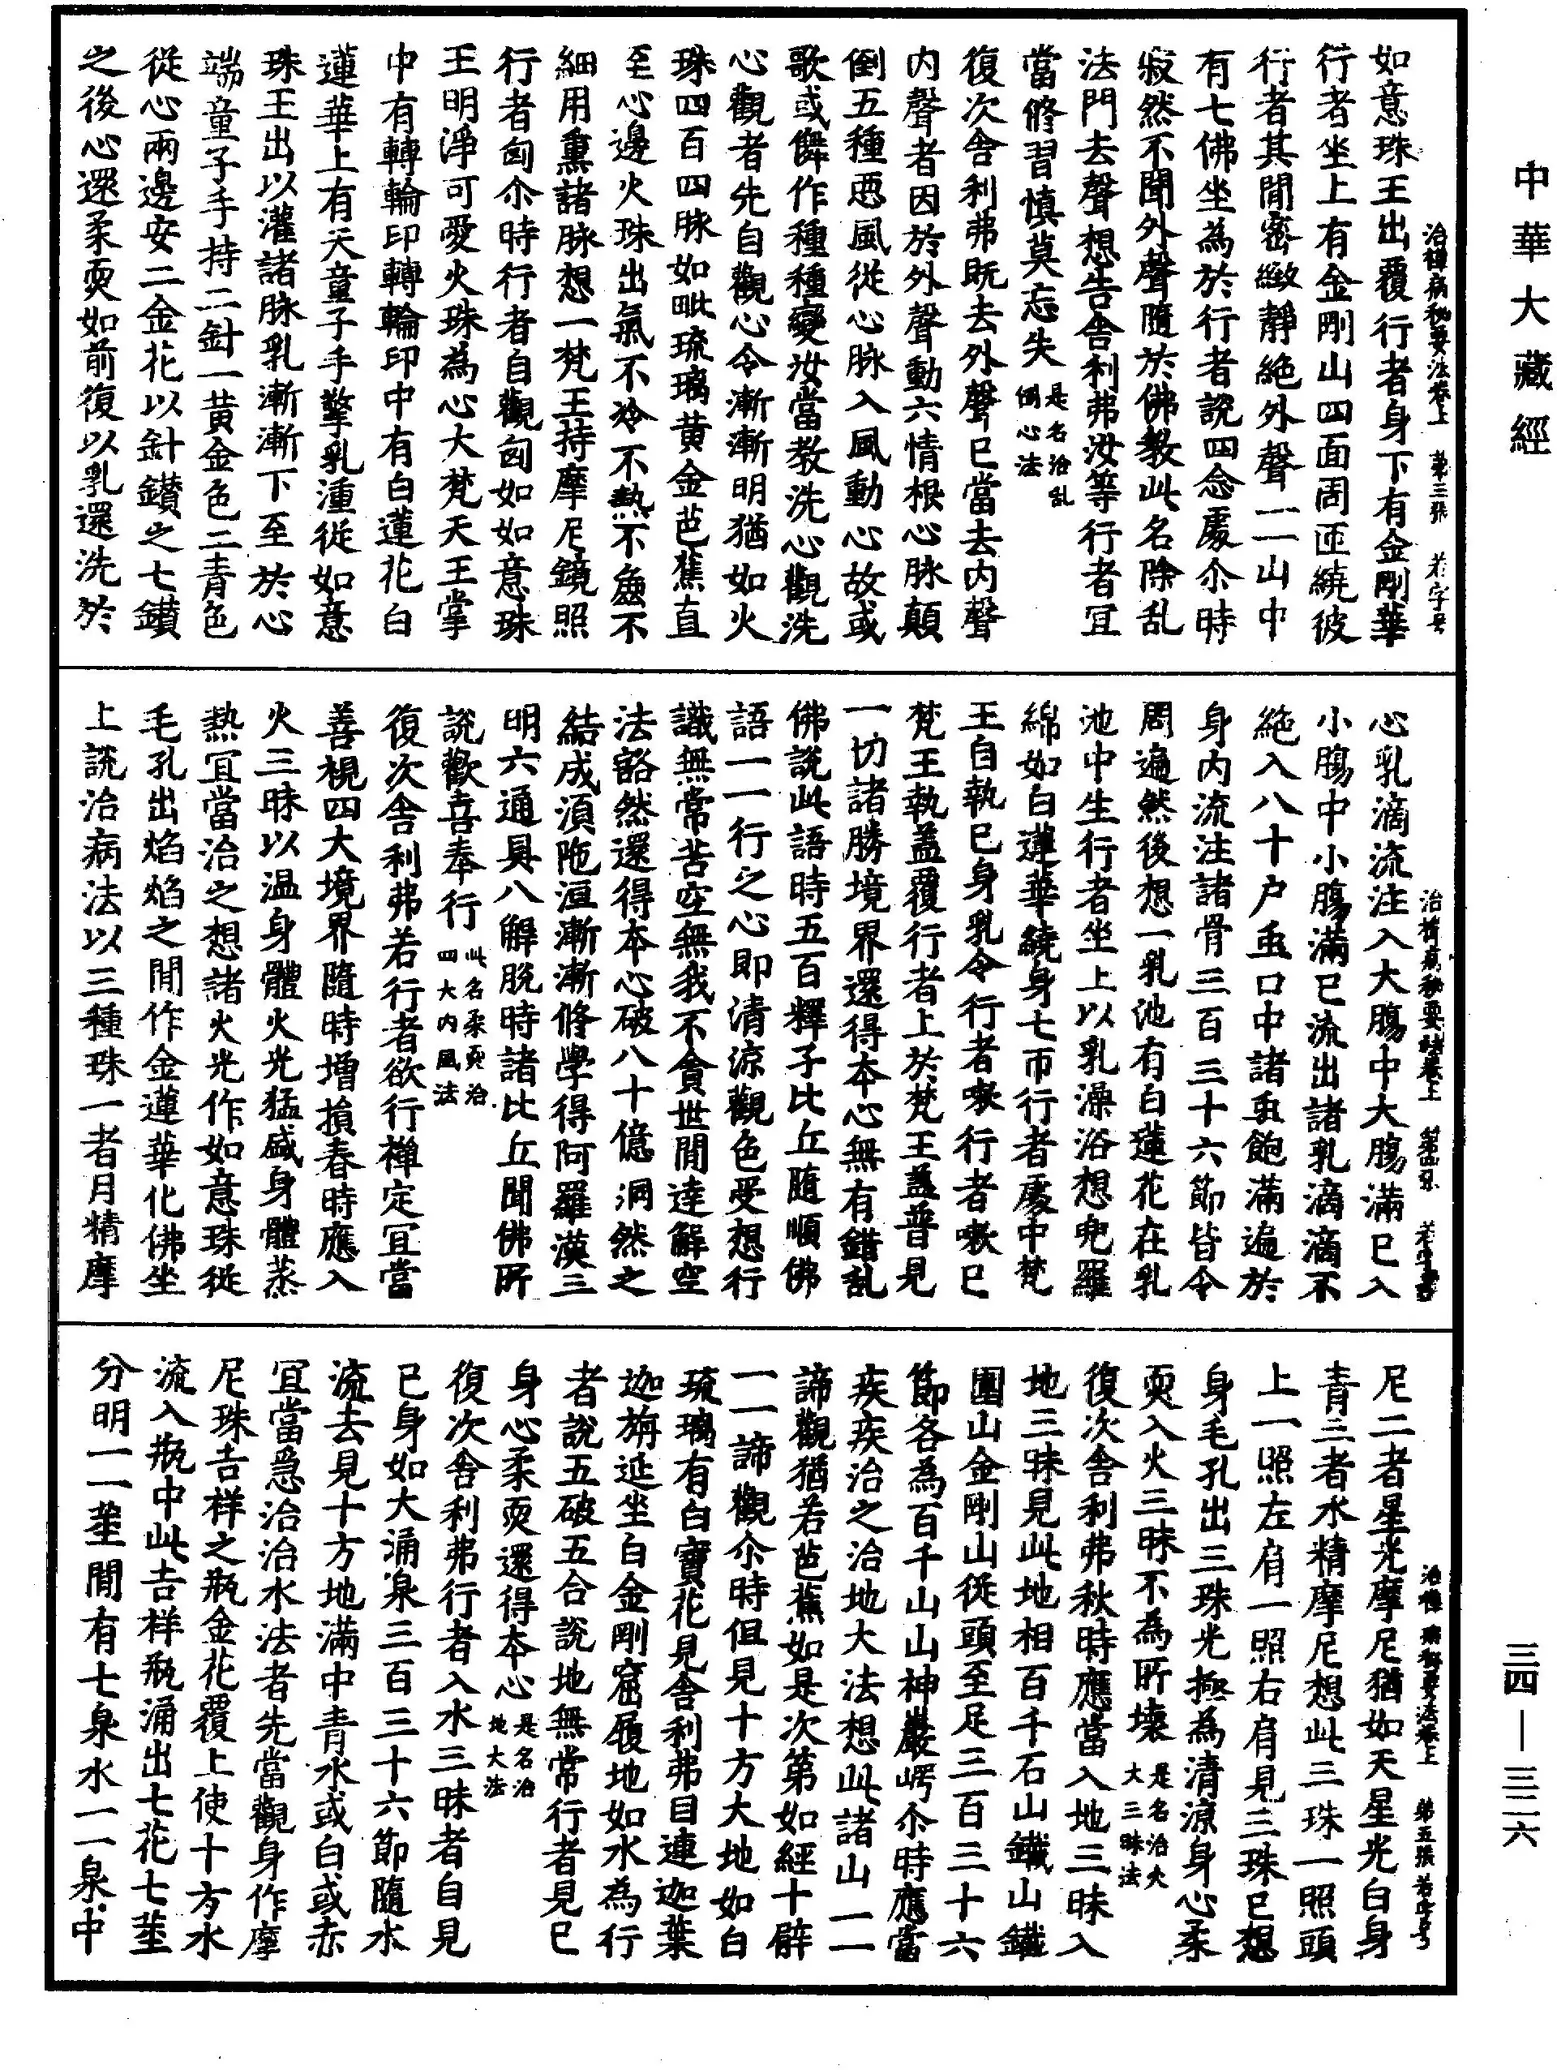 中華大藏經
治禪病秘要法卷上 第三張 若字号
如意珠王出覆行者身下有金剛華
行者坐上有金剛山四面周匝繞彼
行者其間密緻靜絶外聲一一山中
有七佛坐為於行者說四念處尒時
寂然不聞外聲隨於佛教此名除乱
法門去聲想告舍利弗汝等行者冝
當修習慎莫忘失 是名治乱倒心法
復次舍利弗既去外聲已當去内聲
内聲者因於外聲動六情根心脉顛
倒五種惡風從心脉入風動心故或
歌或儛作種種變汝當教洗心觀洗
心觀者先自觀心令漸漸明猶如火
珠四百四脉如毗琉璃黄金芭蕉直
至心邊火珠出氣不冷不熱不麁不
細用熏諸脉想一梵王持摩尼鏡照
行者匈尒時行者自觀匈如如意珠
王明淨可愛火珠為心大梵天王掌
中有轉輪印轉輪印中有白蓮花白
蓮華上有天童子手擎乳湩從如意
珠王出以灌諸脉乳漸漸下至於心
端童子手持二針一黄金色二青色
從心兩邊安二金花以針鑚之七鑚
之後心還柔耎如前復以乳還洗於
治禪病秘要法卷上 第四張 若字号
心乳滴流注入大膓中大膓滿已入
小膓中小膓滿已流出諸乳滴滴不
絶入八十户䖝口中諸䖝飽滿遍於
身内流注諸骨三百三十六節皆令
周遍然後想一乳池有白蓮花在乳
池中生行者坐上以乳澡浴想兜羅
綿如白蓮華繞身七帀行者處中梵
王自執已身乳令行者嗽行者嗽已
梵王執盖覆行者上於梵王盖普見
一切諸勝境界還得本心無有錯乱
佛說此語時五百釋子比丘隨順佛
語一一行之心即清涼觀色受想行
識無常苦空無我不貪世間達解空
法豁然還得本心破八十億洞然之
結成湏陁洹漸漸修學得阿羅漢三
明六通具八解脫時諸比丘聞佛所
說歡喜奉行 此名柔耎治四大内風法
復次舍利弗若行者欲行禅定冝當
善視四大境界隨時增損春時應入
火三昧以温身體火光猛盛身體蒸
熱冝當治之想諸火光作如意珠從
毛孔出焰焰之間作金蓮華化佛坐
上說治病法以三種珠一者月精摩
治禪病秘要法卷上 第五張 若字号
尼二者星光摩尼猶如天星光白身
青三者水精摩尼想此三珠一照頭
上一照左肩一照右肩見三珠已想
身毛孔出三珠光極為清涼身心柔
耎入火三昧不為所壞 是名治火大三昧法
復次舍利弗秋時應當入地三昧入
地三昧見此地相百千石山鐵山鐵
圍山金剛山從頭至足三百三十六
節各為百千山山神巖崿尒時應當
疾疾治之治地大法想此諸山一一
諦觀猶若芭蕉如是次第如經十辟
一一諦觀尒時但見十方大地如白
琉璃有白寶花見舍利弗目連迦葉
迦旃延坐白金剛窟履地如水為行
者說五破五合說地無常行者見已
身心柔耎還得本心 是名治地大法
復次舍利弗行者入水三昧者自見
已身如大涌泉三百三十六節隨水
流去見十方地滿中青水或白或赤
冝當急治治水法者先當觀身作摩
尼珠吉祥之瓶金花覆上使十方水
流入瓶中此吉祥瓶涌出七花七莖
分明一一莖間有七泉水一一泉中
三四—三二六